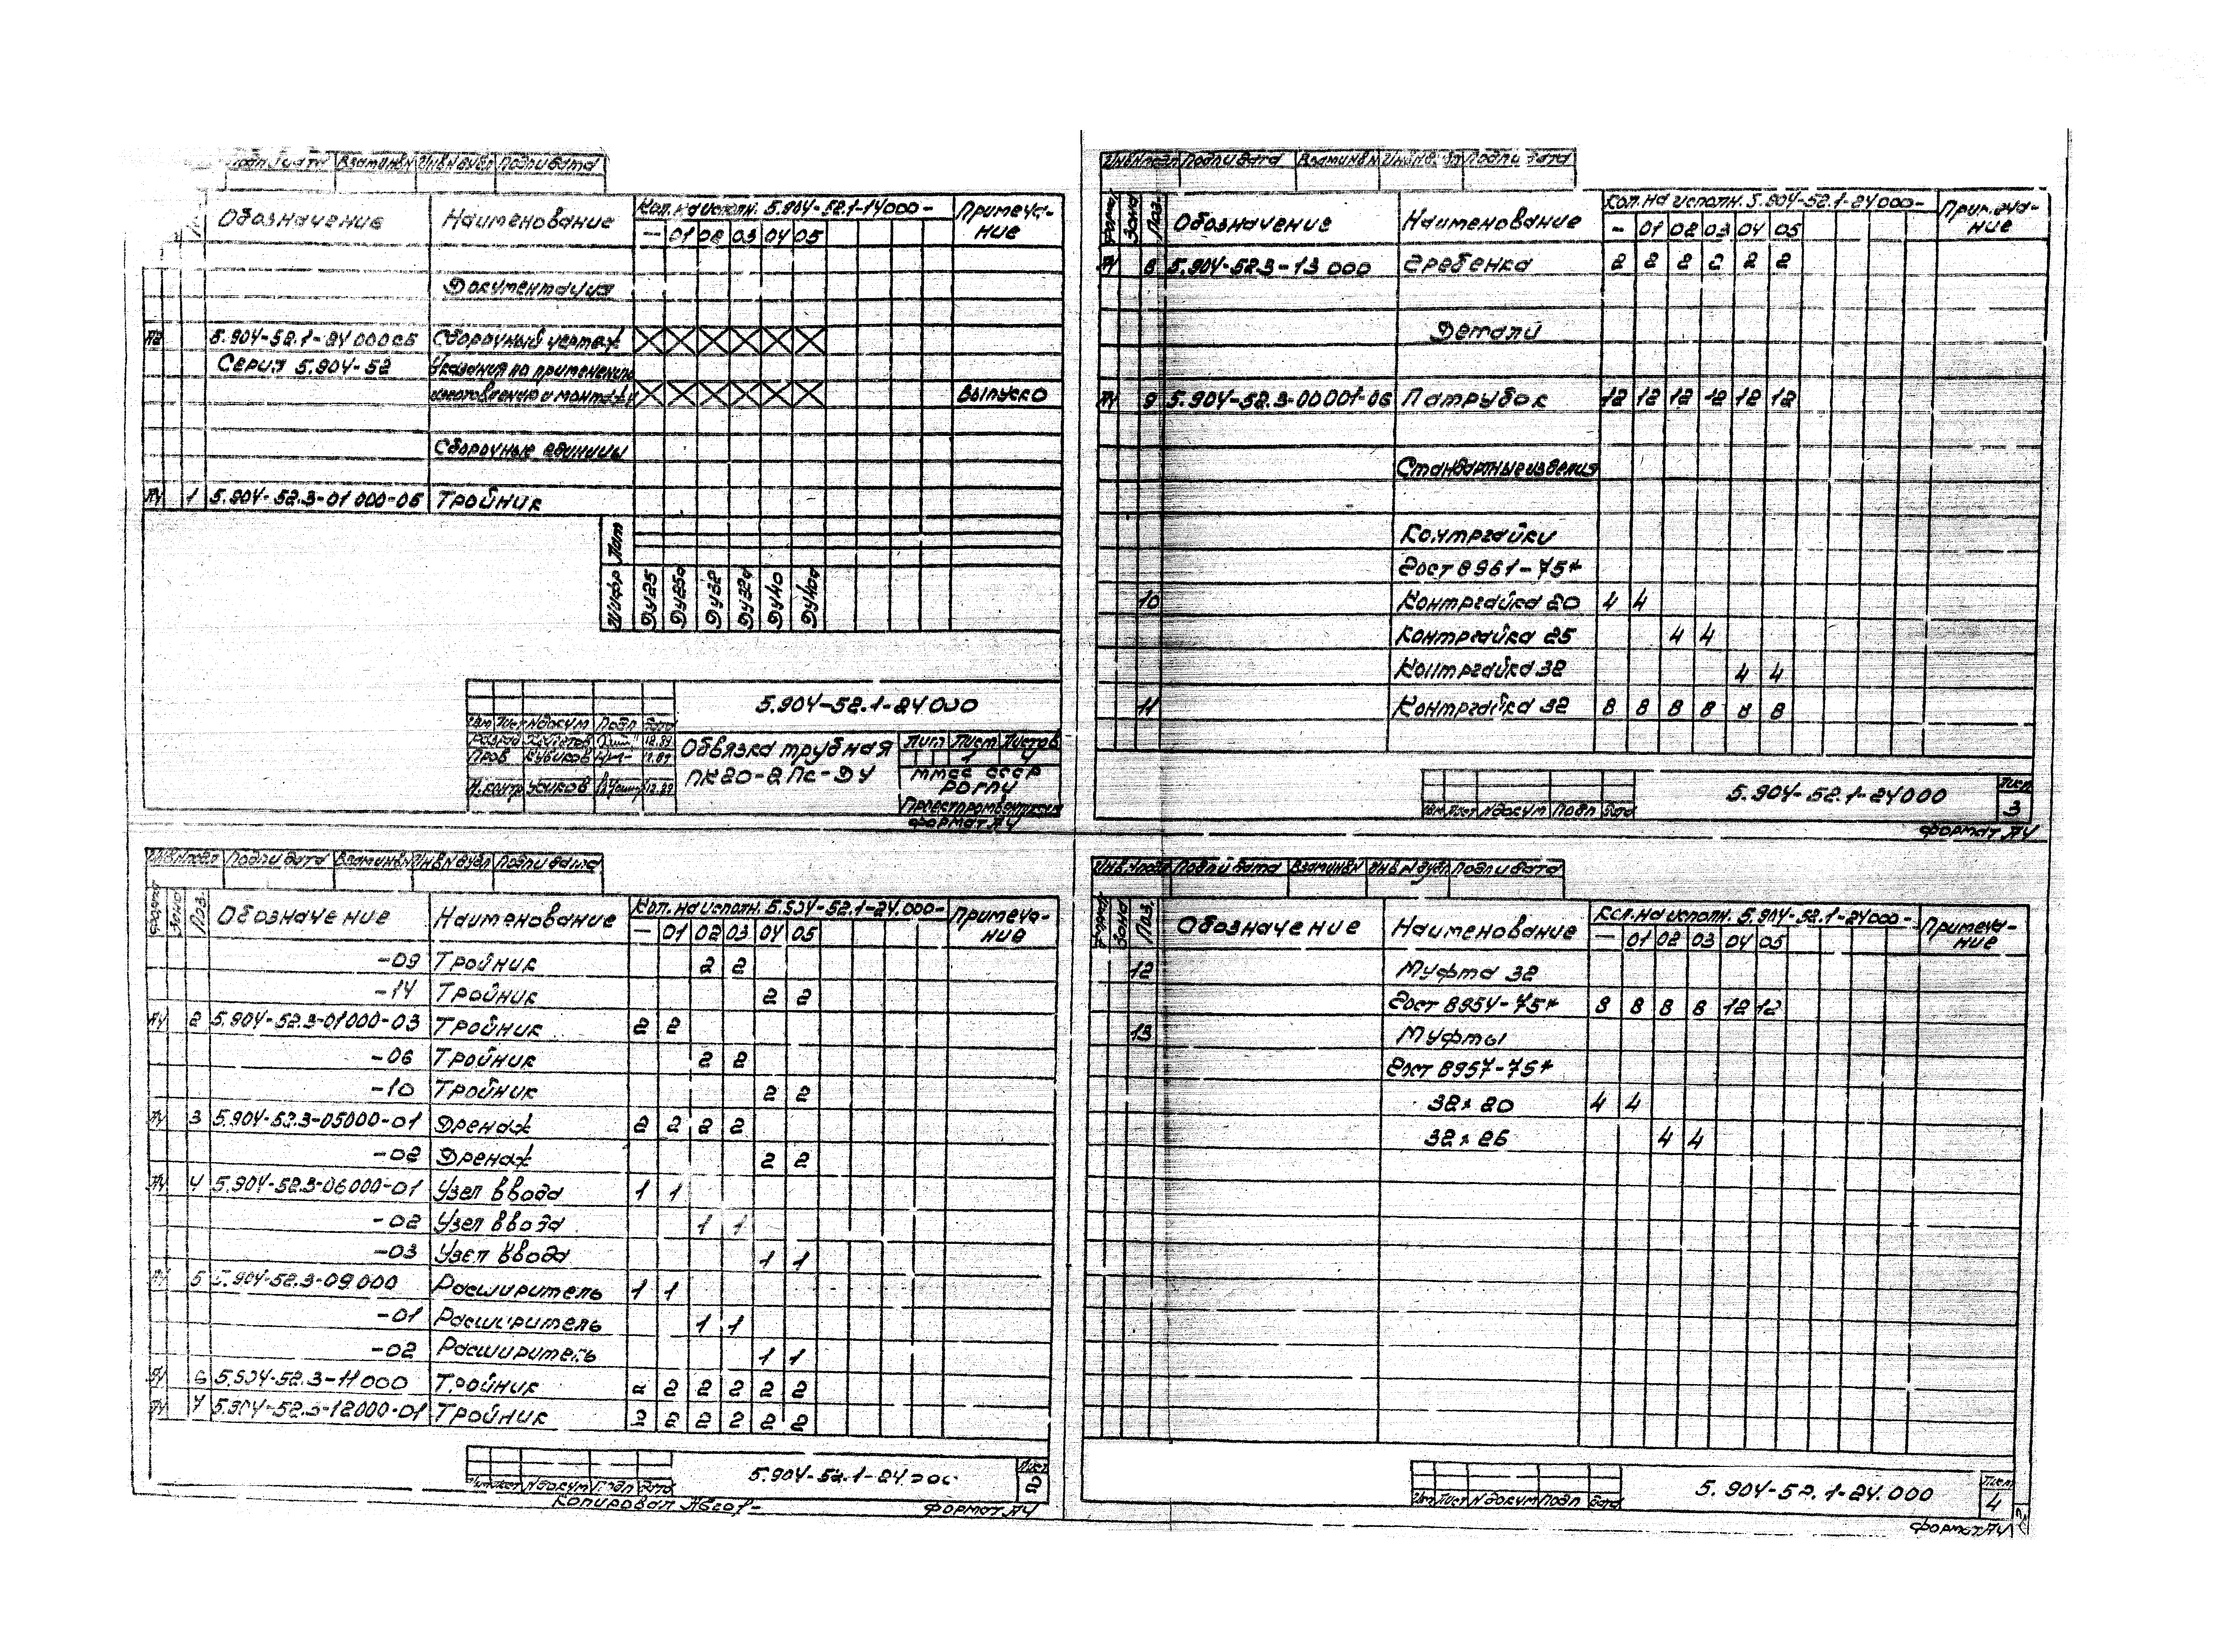 Подп и дата Взам инв N Инв N дубл Подп и дата
Обозначение Наименование Кол. на исполн. 5.904-52.1-14000- Примеча-
— 01 02 03 04 05 ние
Документация
А2 5.904-52.1-24 000СБ Сборочный чертеж
Серия 5.904-52 Указания по применению
изготовлению и монтажу выпуск 0
Сборочные единицы
А4 1 5.904-52.3-01 000-06 Тройник
Лит
Шифр ДУ25 ДУ25а ДУ32 ДУ32а ДУ40 ДУ40а
5.904-52.1-24 000
Изм Лист N докум Подп Дата
Разраб 12.89 Обвязка трубная Лит Лист Листов
Пров Кубиков ПК20-2Пс-ДУ 1 4
ММСС СССР
Н.контр Усиков 12.89
Проектпромвентиляция
Формат А4
Инв N подл Подп и дата Взам инв N Инв N дубл Подп и дата
Формат Зона Поз. Обозначение Наименование Кол. на исполн. 5.904-52.1-24.000- Примеча-
— 01 02 03 04 05 ние
-09 Тройник 2 2
-14 Тройник 2 2
А4 2 5.904-52.3-01000-03 Тройник 2 2
-06 Тройник 2 2
-10 Тройник 2 2
А4 3 5.904-52.3-05000-01 Дренаж 2 2 2 2
-02 Дренаж 2 2
А4 4 5.904-52.3-06000-01 Узел ввода 1 1
-02 Узел ввода 1 1
-03 Узел ввода 1 1
А4 5 5.904-52.3-09 000 Расширитель 1 1
-01 Расширитель 1 1
-02 Расширитель 1 1
А4 6 5.904-52.3-11000 Тройник 2 2 2 2 2 2
А4 7 5.904-52.3-12000-01 Тройник 2 2 2 2 2 2
5.904-52.1-24.000 Лист
Изм Лист N докум Подп Дата 2
Копировал Формат А4
Инв N подл Подп и дата Взам инв N Инв N дубл Подп и дата
Формат Зона Поз. Обозначение Наименование Кол. на исполн. 5.904-52.1-24000- Примеча-
— 01 02 03 04 05 ние
А4 8 5.904-52.3-13 000 Гребенка 2 2 2 2 2 2
Детали
А4 9 5.904-52.3-00001-06 Патрубок 12 12 12 12 12 12
Стандартные изделия
Контргайки
Гост 8961-75*
10 Контргайка 20 4 4
Контргайка 25 4 4
Контргайка 32 4 4
11 Контргайка 32 8 8 8 8 8 8
5.904-52.1-24000 Лист
Изм Лист N докум Подп Дата 3
Формат А4
Инв. N подл Подп и дата Взам инв N Инв N дубл. Подп и дата
Формат Зона Поз. Обозначение Наименование Кол. на исполн. 5.904-52.1-24000- Примеча-
— 01 02 03 04 05 ние
12 Муфта 32
Гост 8954-75* 8 8 8 8 12 12
13 Муфты
Гост 8957-75*
32 x 20 4 4
32 x 25 4 4
5.904-52.1-24.000 Лист
Изм Лист N докум Подп Дата 4
Формат А4